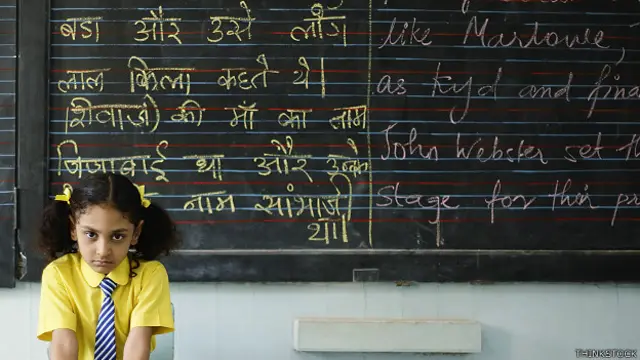 बडा और उसे लोग
लाल किला कहते थे।
शिवाजी की माँ का नाम
जिजाबाई था और उनके
नाम सांभाजी
था।
like Marlowe,
as Kyd and fina
John Webster set th
Stage for their pr
THINKSTOCK